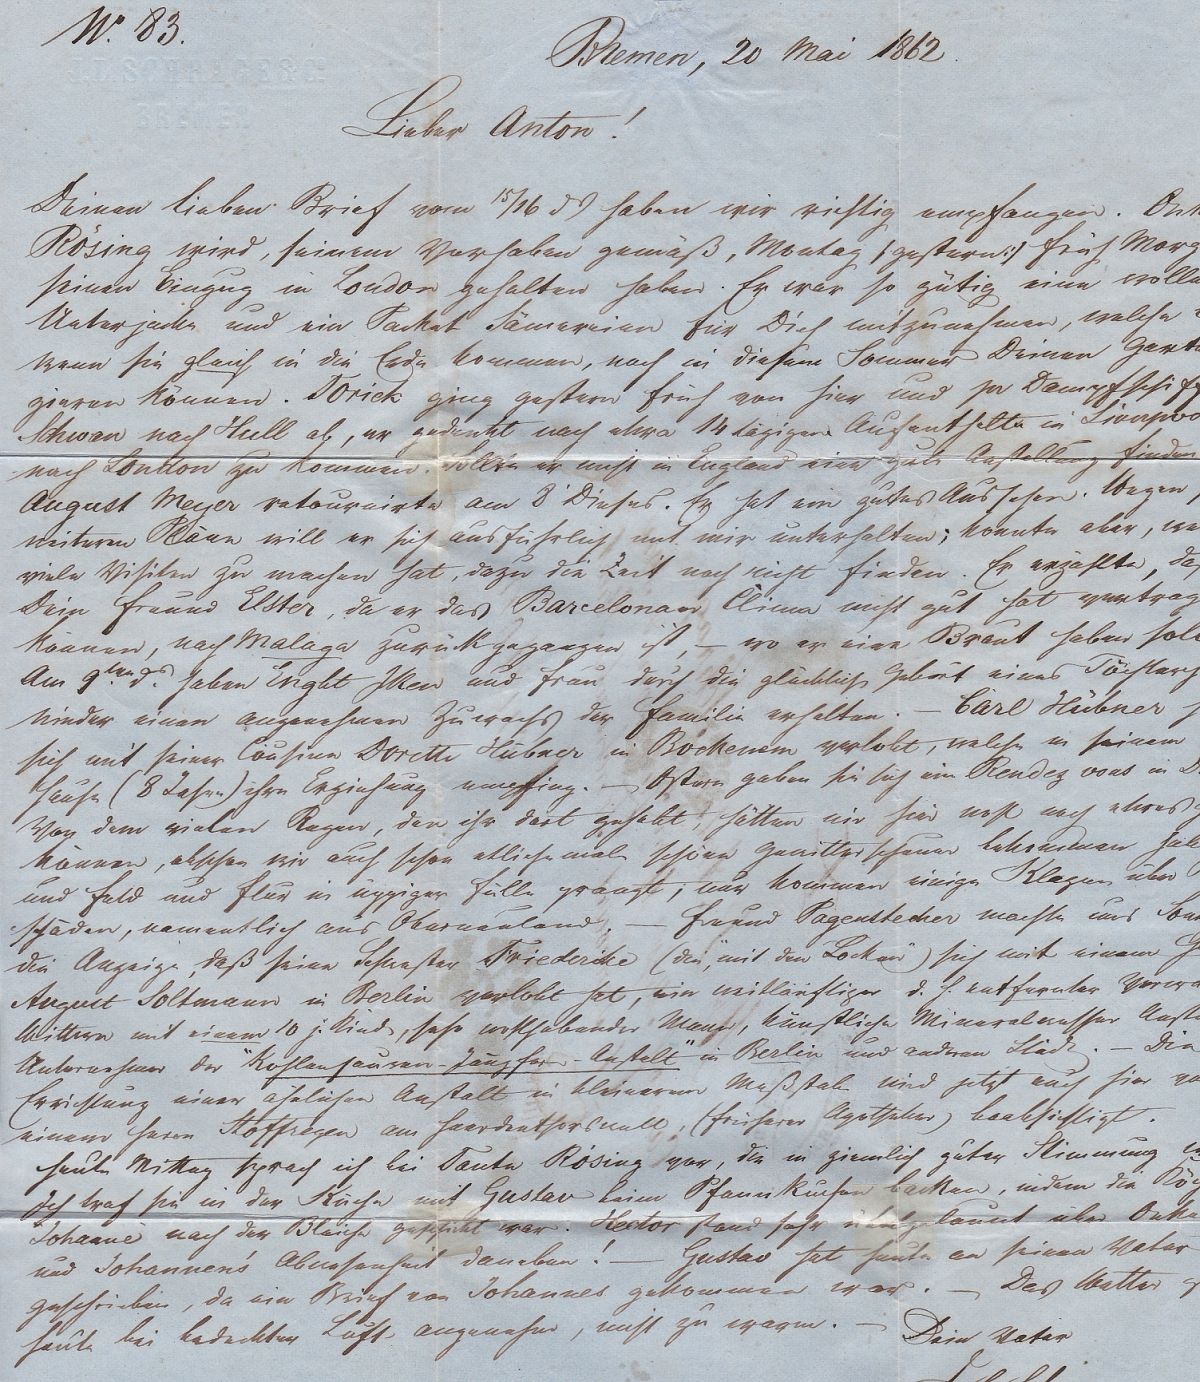 N. 83.
Bremen, 20 Mai 1862.
Lieber Anton!
Deinen lieben Brief vom 15/16 ds haben wir richtig empfangen. Onk
Rösing wird, seinem Vorhaben gemäß, Montag /:gestern:/ früh Morg
seinen Einzug in London gehalten haben. Er war so gütig eine wolle
Unterjacke und ein Packet Sämereien für Dich mitzunehmen, welche
wenn sie gleich in die Erde kommen, noch in diesem Sommer Deinen Garte
zieren können. Torick ging gestern früh von hier und pr Dampfschiff
Schwan nach Hull ab, er gedenkt nach etwa 14 tägigem Aufenthalte in Liverpo
nach London zu kommen. Sollte er nicht in England eine gute Anstellung finden
August Meyer retournirte am 8 Dieses. Er hat ein gutes Aussehen. Wegen
weiteren Pläne will er sich ausführlich mit mir unterhalten; konnte aber, we
viele Visiten zu machen hat, dazu die Zeit noch nicht finden. Er erzählte, daß
Dein Freund Elster, da er das Barcelonaer Clima nicht gut hat vertrag
können, nach Malaga zurückgegangen ist, — wo er eine Braut haben soll
Am 9ten ds. haben Iken und Frau durch die glückliche Geburt eines Töchterch
wieder einen angenehmen Zuwachs der Familie erhalten. — Carl Hübner h
sich mit seiner Cousine Dorette Hübner in Bockenem verlobt, welche in seinem
Hause (8 Jahre) ihre Erziehung empfing. — Ostern gaben sie sich ein Rendez vous in D
Von dem vielen Regen, den ihr dort gehabt, hätten wir hier wohl noch etwas
können, obschon wir auch schon etliche male schöne Gewitterschauer bekommen habe
und Feld und Flur in üppiger Fülle prangt; nur kommen einige Klagen über
schäden, namentlich aus Oberneuland. — Freund Pagenstecher machte uns Son
die Anzeige, daß seine Schwester Friederike (die, mit den Locken) sich mit einem H
August Soltmann in Berlin verlobt hat, ein weitläuftiger d. h. entfernter Verwa
Wittwer mit einem 10 j. Kind, sehr wohlhabender Mann, künstliche Mineralwasser Anst
Unternehmer der "Kohlensauren-Jungfern-Anstalt" in Berlin und anderen Städt. — Die
Errichtung einer ähnlichen Anstalt in kleinerem Maßstabe wird jetzt auch hier vo
einem Herrn Stoffregen am Heerdenthorswall, (früherer Apotheker) beabsichtigt.
Heute Mittag sprach ich bei Tante Rösing vor, die in ziemlich guter Stimmung
Ich traf sie in der Küche mit Gustav beim Pfannkuchen backen, indem die Köch
Johanne nach der Bleiche geschickt war. Hector stand sehr übelgelaunt über Onke
und Johannen's Abwesenheit daneben! — Gustav hat heute an seinen Vater
geschrieben, da ein Brief von Johannes gekommen war. — Das Wetter
heute bei bedeckter Luft angenehm, nicht zu warm. —
Dein Vater